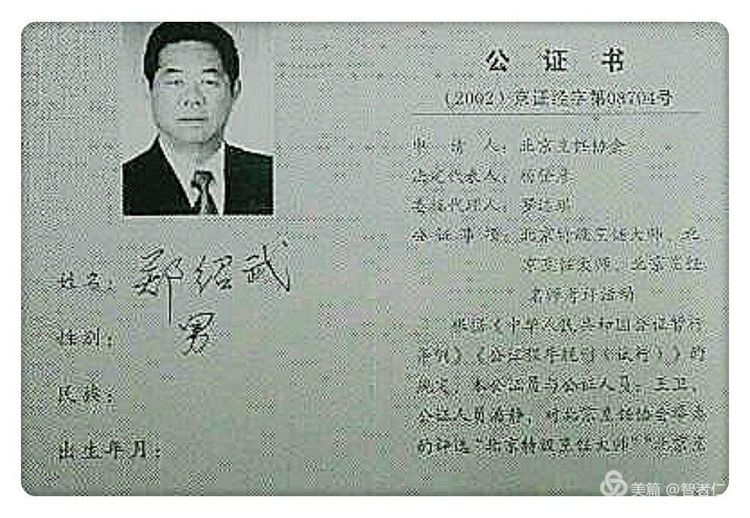 姓名：郑绍武
性别：男
民族：
出生年月：
公 证 书
(2002)京证经字第08704号
申 请 人：北京烹饪协会
法定代表人：
委托代理人：
公证事项：北京特级烹饪大师、北
京烹饪大师、北京烹饪
名师考评活动
根据《中华人民共和国公证暂行
条例》《公证程序规则（试行）》的
规定，本公证员与公证人员：王卫、
公证人员 对北京烹饪协会
的评选“北京特级烹饪大师”“北京烹
美篇 @智者仁